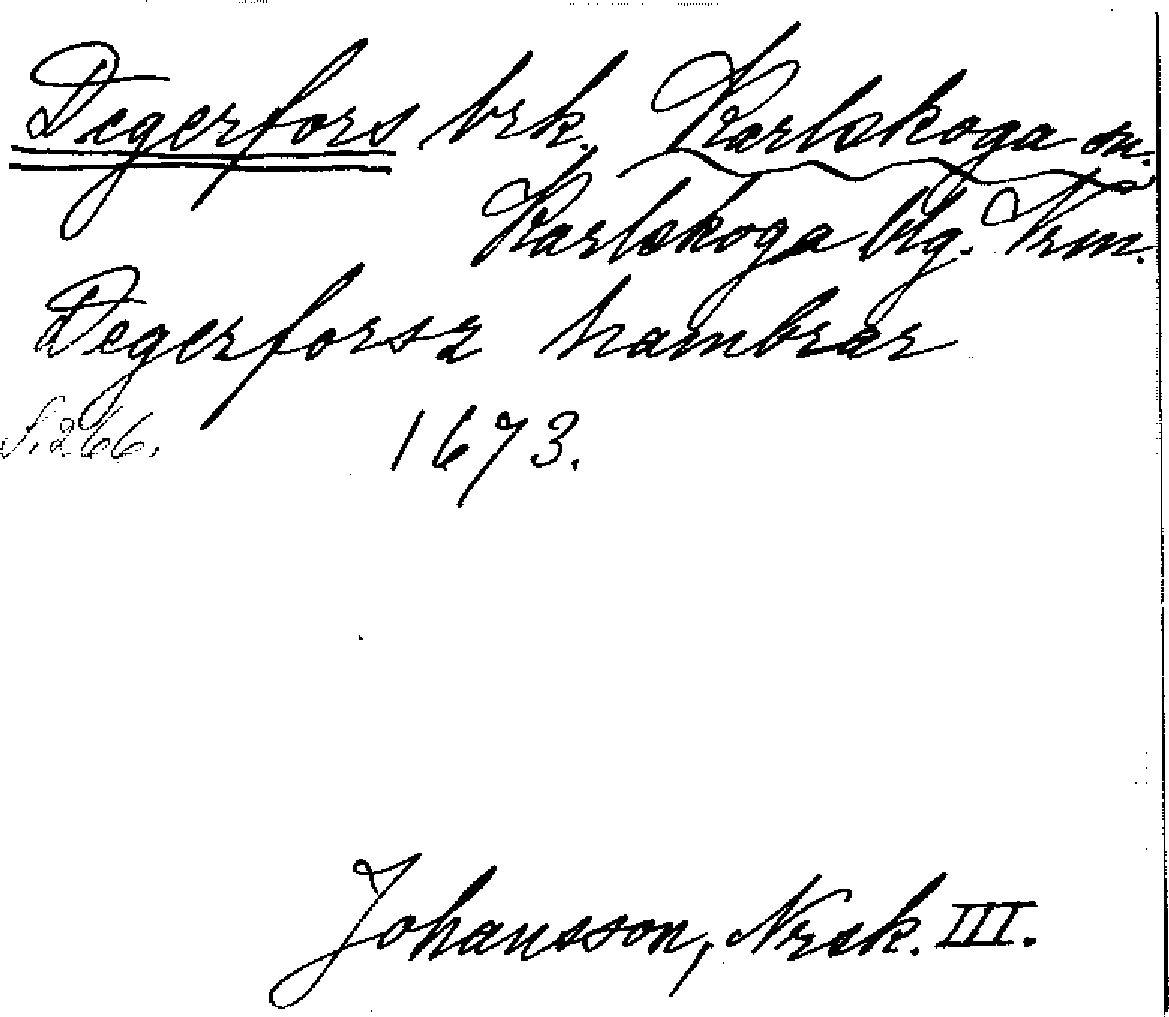 Degerfors brk. Karlskoga sn.
Karlskoga blg. Vrm.
Degerforsz hambrar
S. 266. 1673.
Johansson, Nrsk. III.